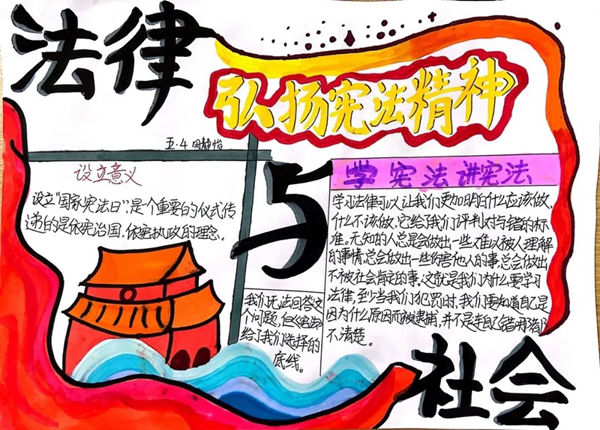 法律
弘扬宪法精神
五·4 田静怡
设立意义
设立“国家宪法日”,是个重要的仪式传
递的是依宪治国,依宪执政的理念。
与
学宪法讲宪法
学习法律可以让我们更加明白什么应该做,
什么不该做,它给我们评判对与错的标
准。无知的人总是会做出一些难以被人理解
的事情,总会做出一些伤害他人的事,总会做出
不被社会肯定的事。这就是我们为什么要学习
法律,至少当我们犯罪时,我们要知道自己是
因为什么原因而被逮捕,并不是连自己错哪都
不清楚。
我们无法回答这
个问题,但《宪法》
给了我们选择的
底线。
社会